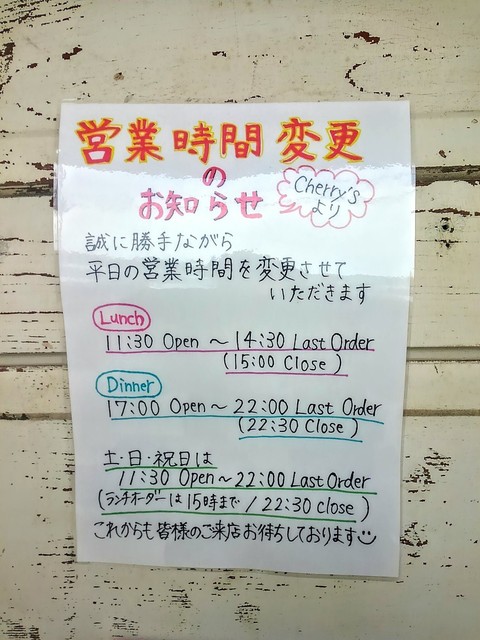 営業時間変更
の
お知らせ
Cherry's
より
誠に勝手ながら
平日の営業時間を変更させて
いただきます
Lunch
11:30 Open ～ 14:30 Last Order
(15:00 Close)
Dinner
17:00 Open ～ 22:00 Last Order
(22:30 Close)
土・日・祝日は
11:30 Open ～ 22:00 Last Order
(ランチオーダーは15時まで / 22:30 close)
これからも皆様のご来店お待ちしております